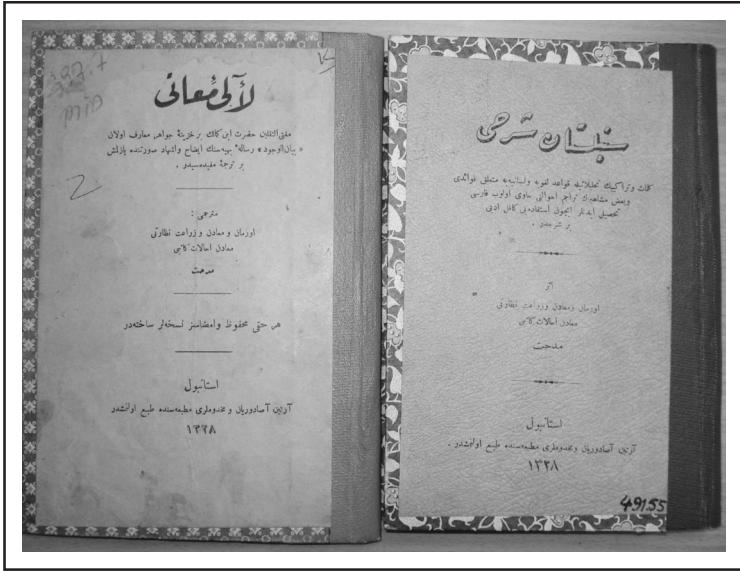 لآلئ معانی
مفتی الثقلین حضرت ابن کمالك بر خزینهٔ جواهر معارف اولان
« بیان الوجود » رسالهٔ بهیه‌سنك ایضاح واشهاد صورتنده یازلمش
بر ترجمهٔ مفیده‌سیدر .
مترجمی :
اورمان و معادن و زراعت نظارتی
معادن احالات کاتبی
مدحت
هر حقی محفوظ وامضاسز نسخه‌لر ساخته‌در
استانبول
آرتین آصادوریان و مخدوملری مطبعه‌سنده طبع اولنمشدر
١٣٢٨
سنبلستان شرحی
كلمات وتراكيبك تحليلاتيله قواعد لغویه ولسانیه‌یه متعلق فوائدی
وبعض مشاهیرك تراجم احوالنی حاوی اولوب فارسی
تحصیل ایدنلر ایچون استفاده‌یی کافل ادبی
بر شرحدر .
اثر
اورمان ومعادن وزراعت نظارتی
معادن احالات کاتبی
مدحت
استانبول
آرتین آصادوریان ومخدوملری مطبعه‌سنده طبع اولنمشدر .
١٣٢٨
49155